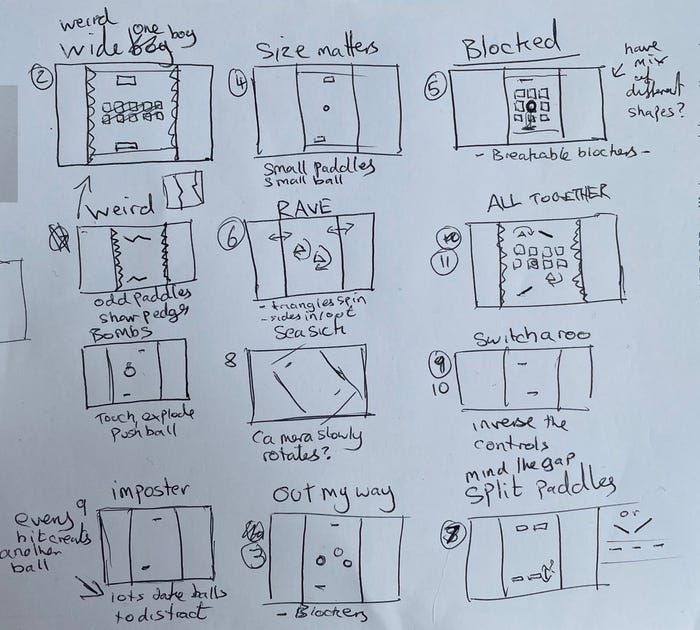 weird
wide one boy
2
Size matters
4
Small paddles
small ball
Blocked
5
have
mix
of
different
shapes?
- Breakable blockers -
weird
odd paddles
sharp edges
RAVE
6
- triangles spin
- sides in/out
ALL TOGETHER
11
BOMBS
Touch, explode
push ball
Seasick
8
Camera slowly
rotates?
Switcharoo
9
10
inverse the
controls
imposter
9
every
hit creates
another
ball
lots fake balls
to distract
Out my way
3
- Blockers
mind the gap
Split paddles
or